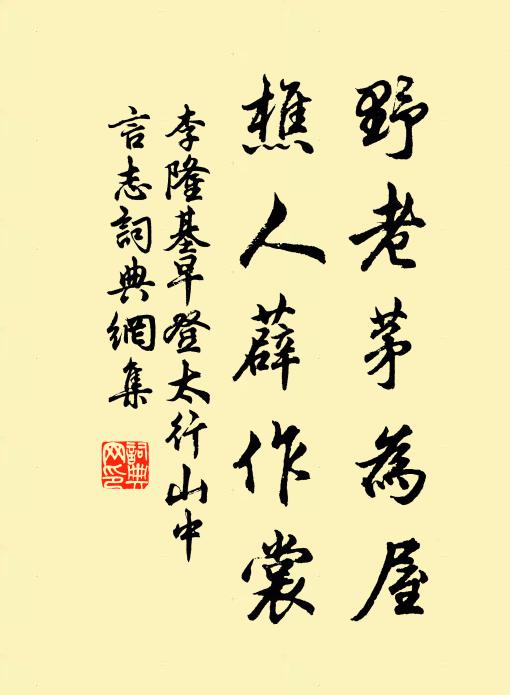 野老茅為屋
樵人薜作裳
李隆基早登太行山中
言志詞典網集
詞典
网印